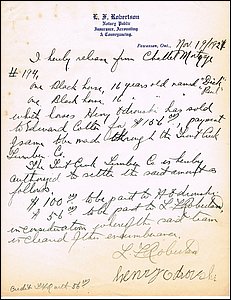 E. J. Robertson
Notary Public
Insurance, Accounting
& Conveyancing.
Fawassan, Ont., Nov 19/1924
I hereby release from Chattel Mortgage
# 194,
one Black horse, 16 years old named "Dick"
one Black horse 16
which horses Henry has sold
to Edward for $156 00 payment
to be made through the
Lumber Co.
The Lumber Co is hereby
authorized to settle the said amount as
follows.
$100 00 to be paid to H
$56 00 to be paid to L J Robertson
in consideration whereof the said team
is cleared of the encumbrance.
L J Robertson
Henry
Credit 56 00